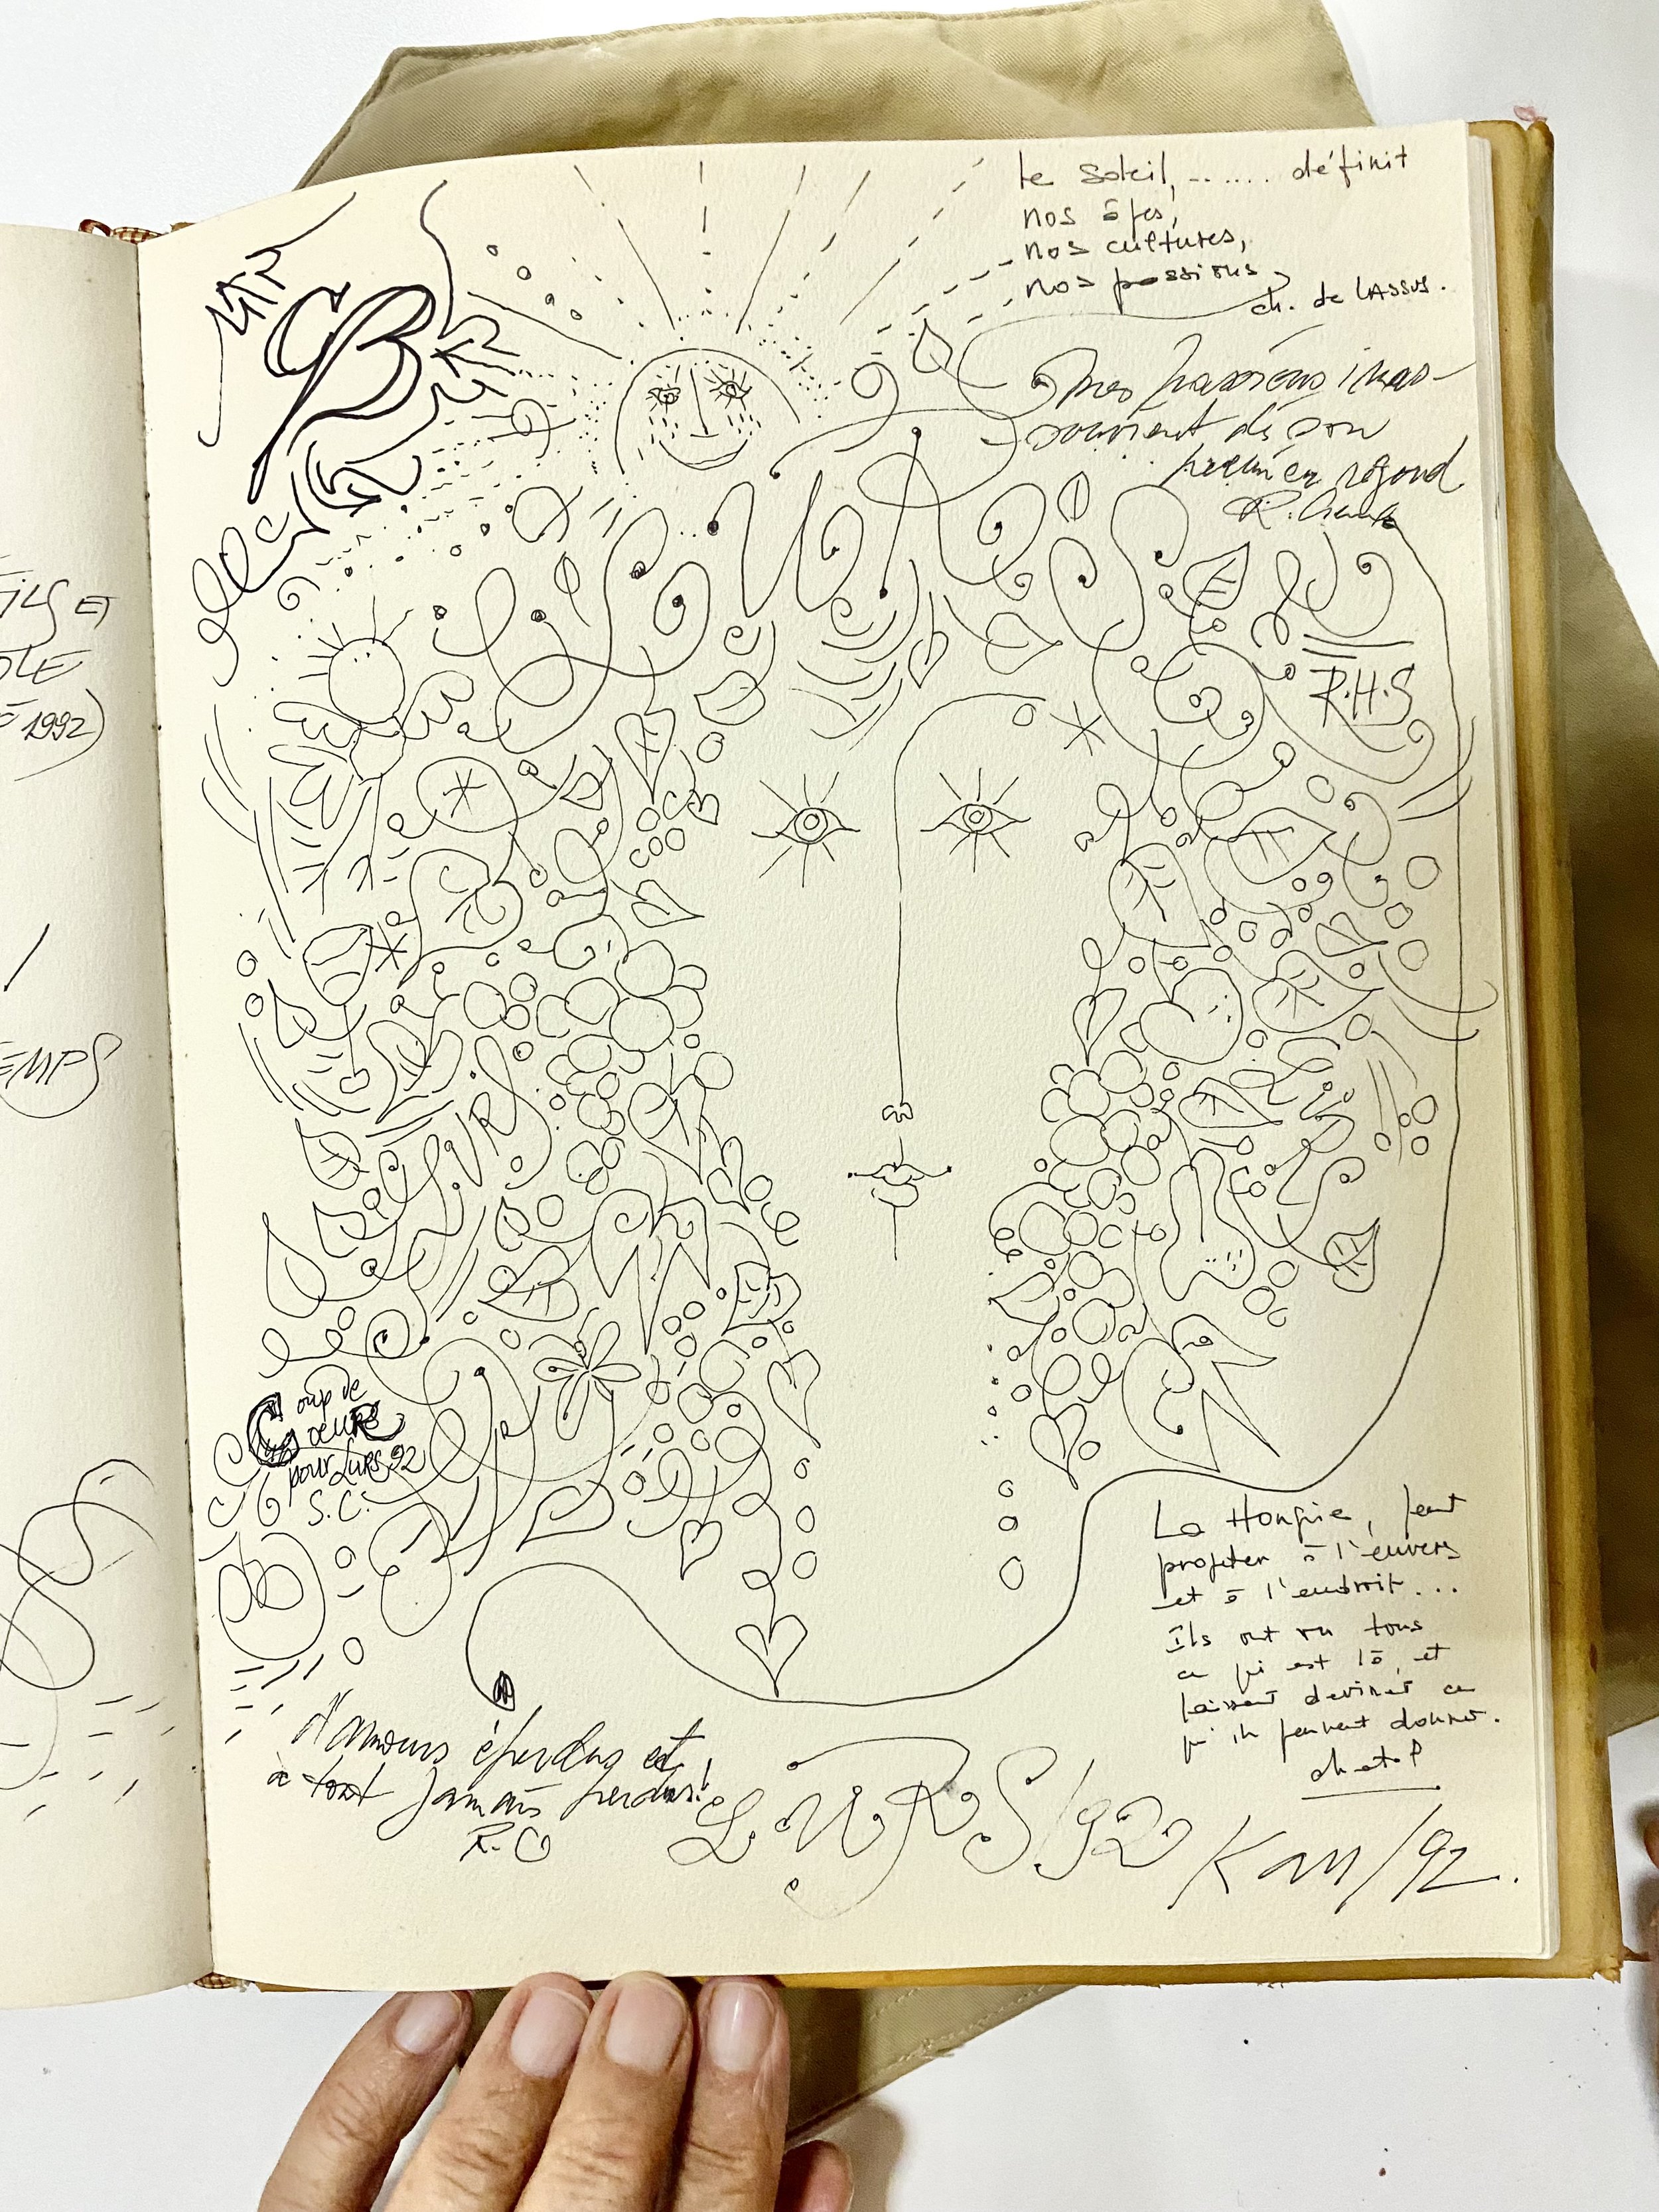 le soleil, ...... définit
nos âges,
nos cultures,
nos passions
ch. de LASSUS.
premier regard
R.H.S
Coup de
Cœur
pour LURS 92
S.C.
LURS
La Hongrie, peut
profiter à l'envers
et à l'endroit...
Ils ont vu tous
ce qui est là, et
laissent deviner ce
qu'ils peuvent donner.
d'amours éperdus et
à tout jamais perdus!
R.C
LURS/92
Kan/92.
ILS ET
1992)
EMPS